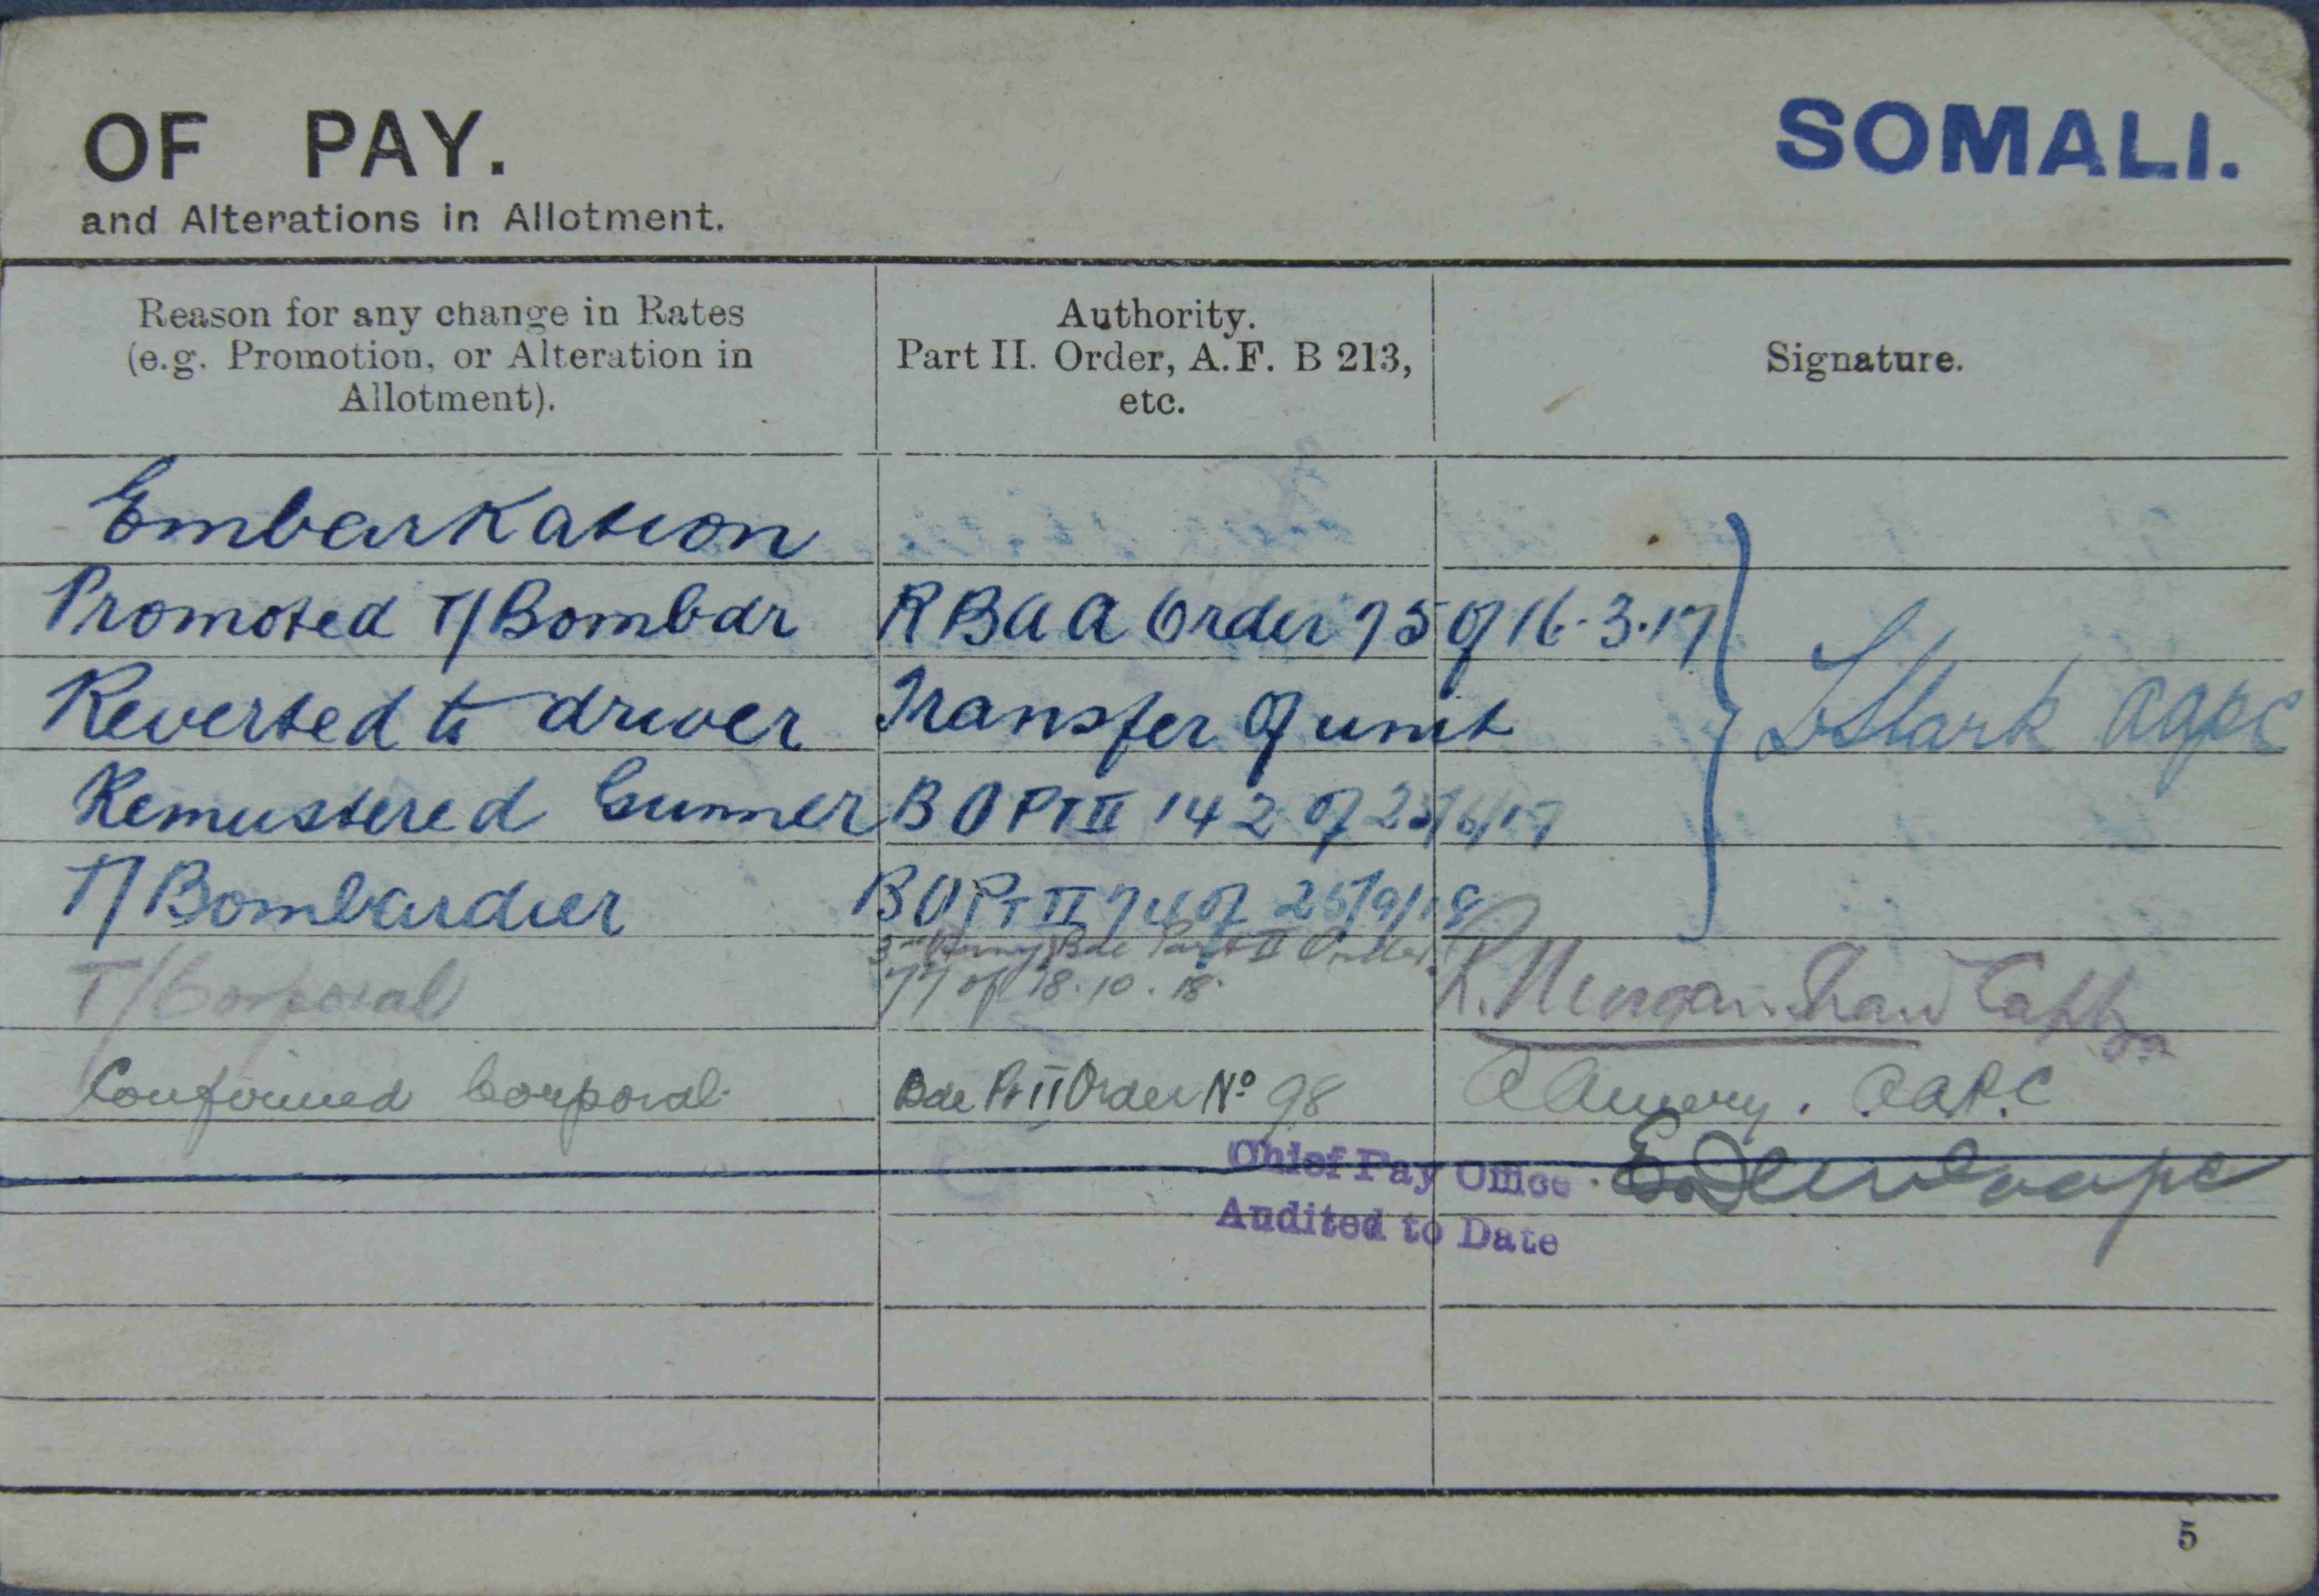 OF PAY.
SOMALI.
and Alterations in Allotment.
Reason for any change in Rates
(e.g. Promotion, or Alteration in
Allotment).
Authority.
Part II. Order, A.F. B 213,
etc.
Signature.
Embarkation
Promoted T/Bombdr RBAA Order 75 of 16.3.17
Reverted to driver Transfer of unit
Stark AAPC
Remustered Gunner BO PT II 142 of 25/6/17
T/Bombardier BO PT II 74 of 25/9/18
T/Corporal 3rd (Army) Bde Part II Order
77 of 18.10.18. Capt
Confirmed Corporal Bde Pt II Order No 98 A Amory. A.A.P.C
Chief Pay Office
Audited to Date
5